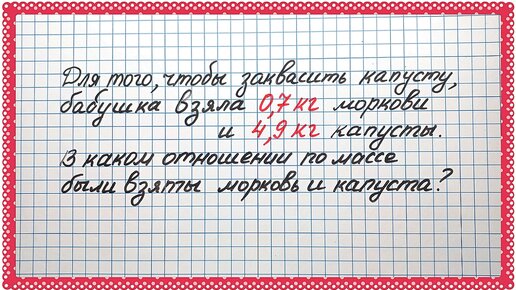 Для того, чтобы заквасить капусту,
бабушка взяла 0,7 кг моркови
и 4,9 кг капусты.
В каком отношении по массе
были взяты морковь и капуста?